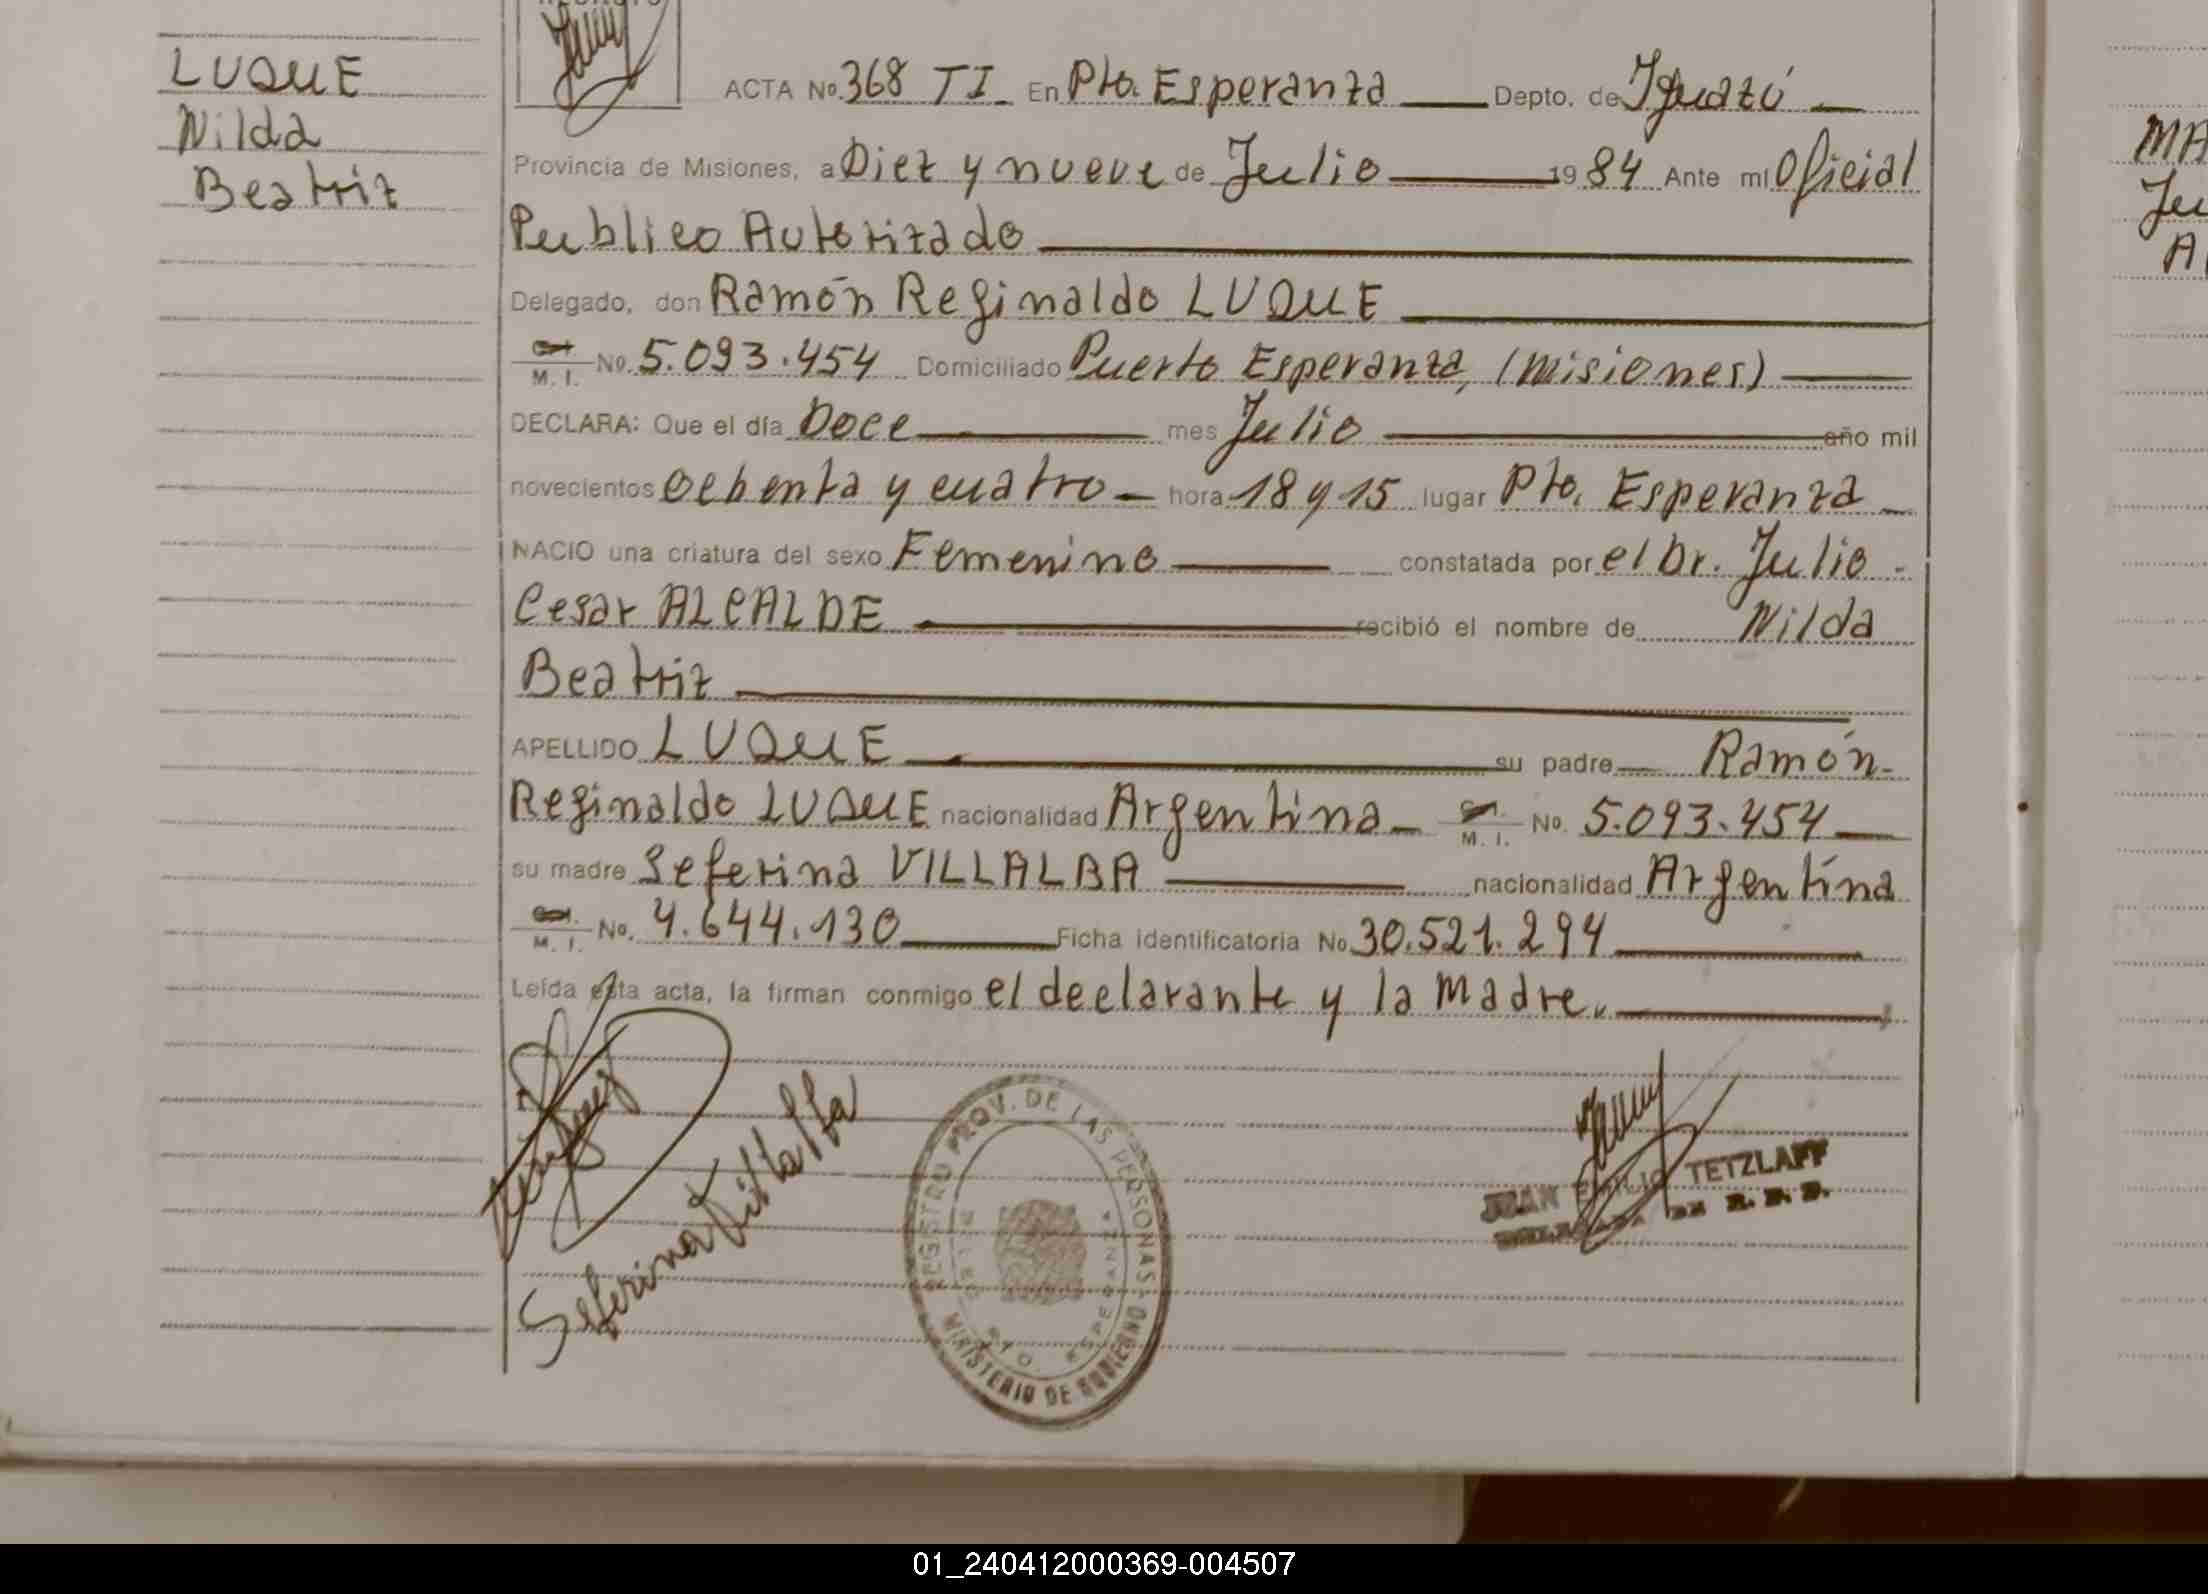 LUQUE
Nilda
Beatriz
ACTA No. 368 TI En Pto. Esperanza Depto. de Iguazú
Provincia de Misiones, a Diez y nueve de Julio 1984 Ante mí Oficial
Publico Autorizado
Delegado, don Ramón Reginaldo LUQUE
M. I. No. 5.093.454 Domiciliado Puerto Esperanza, (Misiones)
DECLARA: Que el día Doce mes Julio año mil
novecientos ochenta y cuatro hora 18 y 15 lugar Pto. Esperanza
NACIO una criatura del sexo Femenino constatada por el Dr. Julio
Cesar ALCALDE recibió el nombre de Nilda
Beatriz
APELLIDO LUQUE su padre Ramón
Reginaldo LUQUE nacionalidad Argentina M. I. No. 5.093.454
su madre Seferina VILLALBA nacionalidad Argentina
M. I. No. 4.644.130 Ficha identificatoria No 30.521.294
Leída esta acta, la firman conmigo el declarante y la madre.
Seferina Villalba
REGISTRO PROV. DE LAS PERSONAS
PTO. ESPERANZA
MINISTERIO DE GOBIERNO
JUAN EMILIO TETZLAFF
MA
Ju
01_240412000369-004507